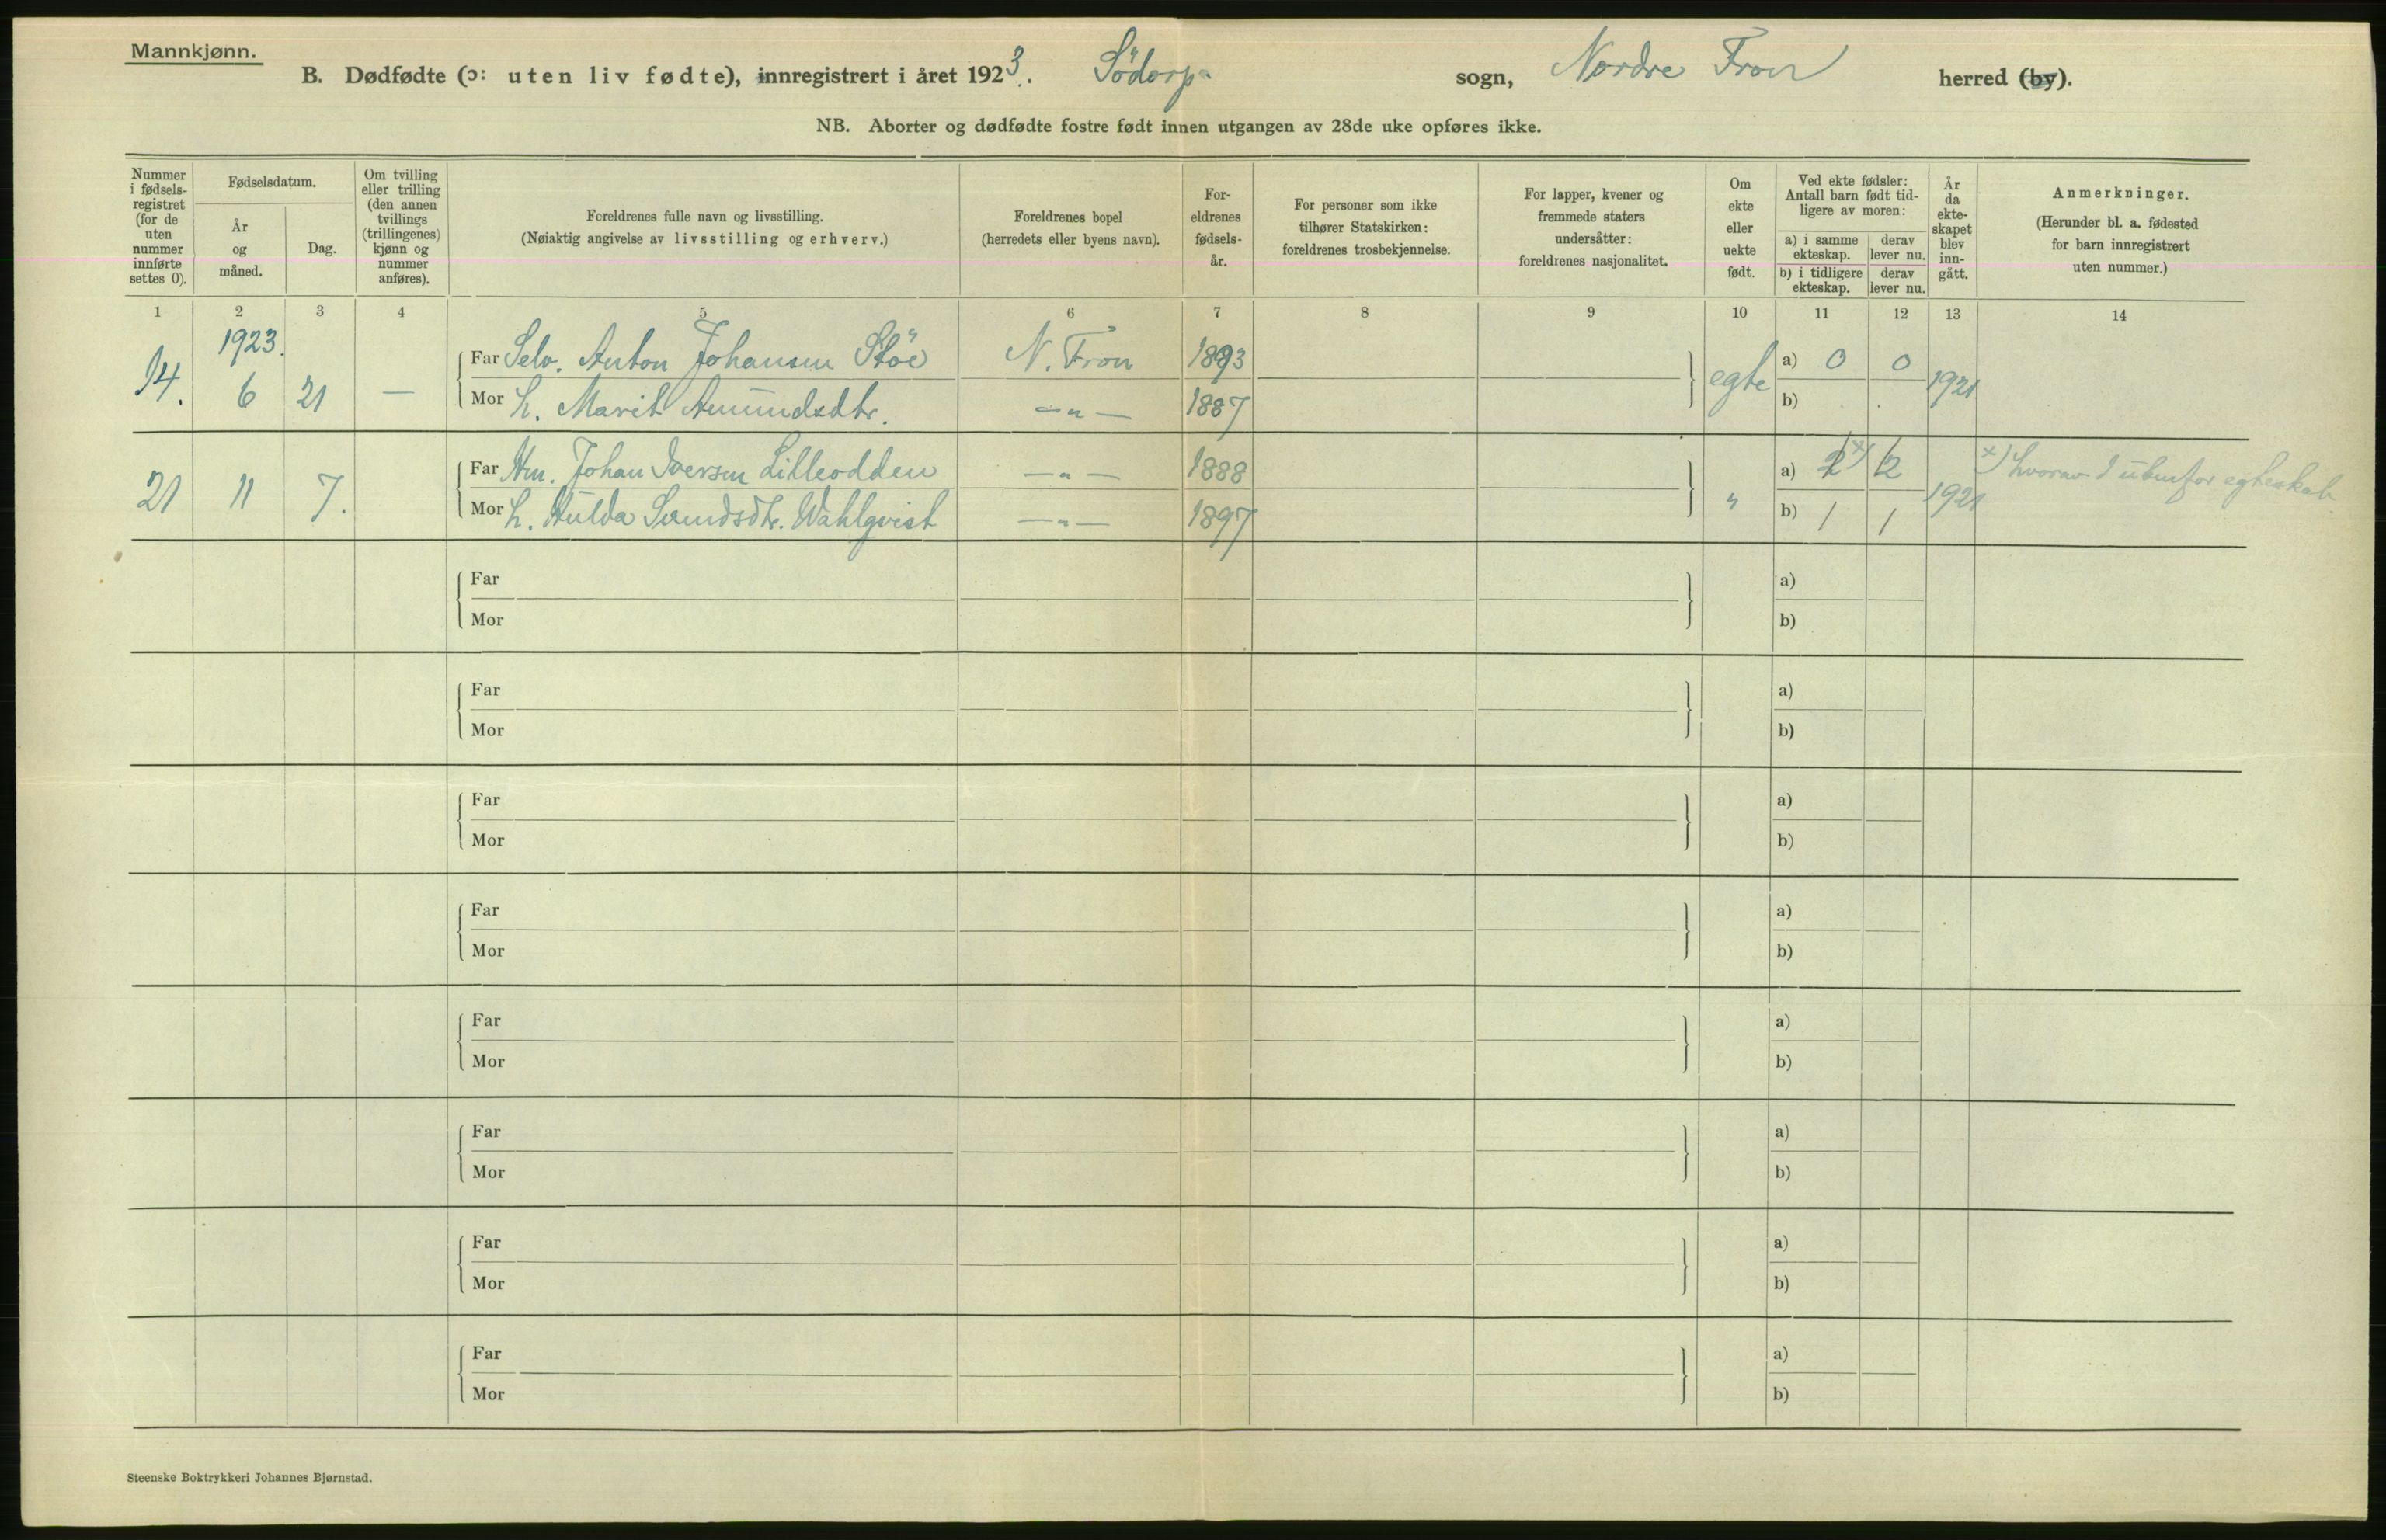 Mannkjønn.
B. Dødfødte (ɔ: uten liv fødte), innregistrert i året 1923. Södorp sogn, Nordre Fron herred (by).
NB. Aborter og dødfødte fostre født innen utgangen av 28de uke opføres ikke.
Nummer i fødsels- registret (for de uten nummer innførte settes 0).
Fødselsdatum.
År og måned.
Dag.
Om tvilling eller trilling (den annen tvillings (trillingenes) kjønn og nummer anføres).
Foreldrenes fulle navn og livsstilling.
(Nøiaktig angivelse av livsstilling og erhverv.)
Foreldrenes bopel
(herredets eller byens navn).
For- eldrenes fødsels- år.
For personer som ikke tilhører Statskirken: foreldrenes trosbekjennelse.
For lapper, kvener og fremmede staters undersåtter: foreldrenes nasjonalitet.
Om ekte eller uekte født.
Ved ekte fødsler: Antall barn født tid- ligere av moren:
a) i samme ekteskap. derav lever nu.
b) i tidligere ekteskap. derav lever nu.
År da ekte- skapet blev inn- gått.
Anmerkninger.
(Herunder bl. a. fødested for barn innregistrert uten nummer.)
1 2 3 4 5 6 7 8 9 10 11 12 13 14
1923.
14. 6 21 —
Far Selv. Anton Johansen Stöe N. Fron 1893 egte a) 0 0 1921
Mor h. Marit Amundsdtr. —„— 1887 b)
21 11 7.
Far Johan Iversen Lilleodden —„— 1888 „ a) 2 x) 2 1921 x) hvorav 1 utenfor egteskab
Mor h. Hulda Wahlqvist —„— 1897 b) 1 1
Far a)
Mor b)
Far a)
Mor b)
Far a)
Mor b)
Far a)
Mor b)
Far a)
Mor b)
Far a)
Mor b)
Far a)
Mor b)
Far a)
Mor b)
Steenske Boktrykkeri Johannes Bjørnstad.